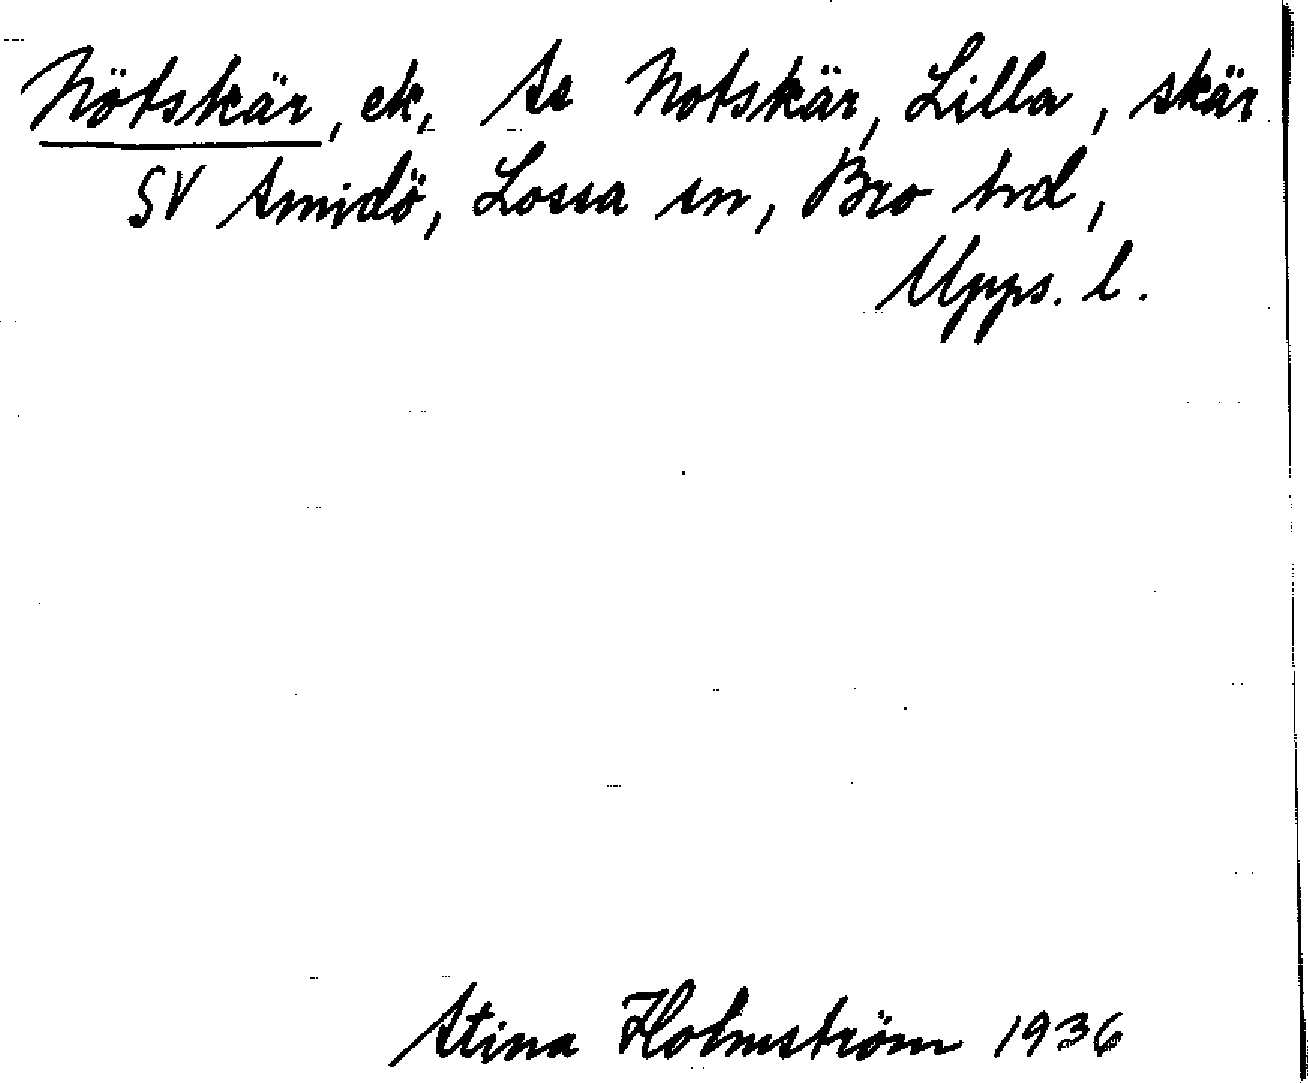 Nötskär, ek, Se Notskär, Lilla, skär
SV Smidö, Lossa sn, Bro hd,
Upps. l.
Stina Holmström 1936